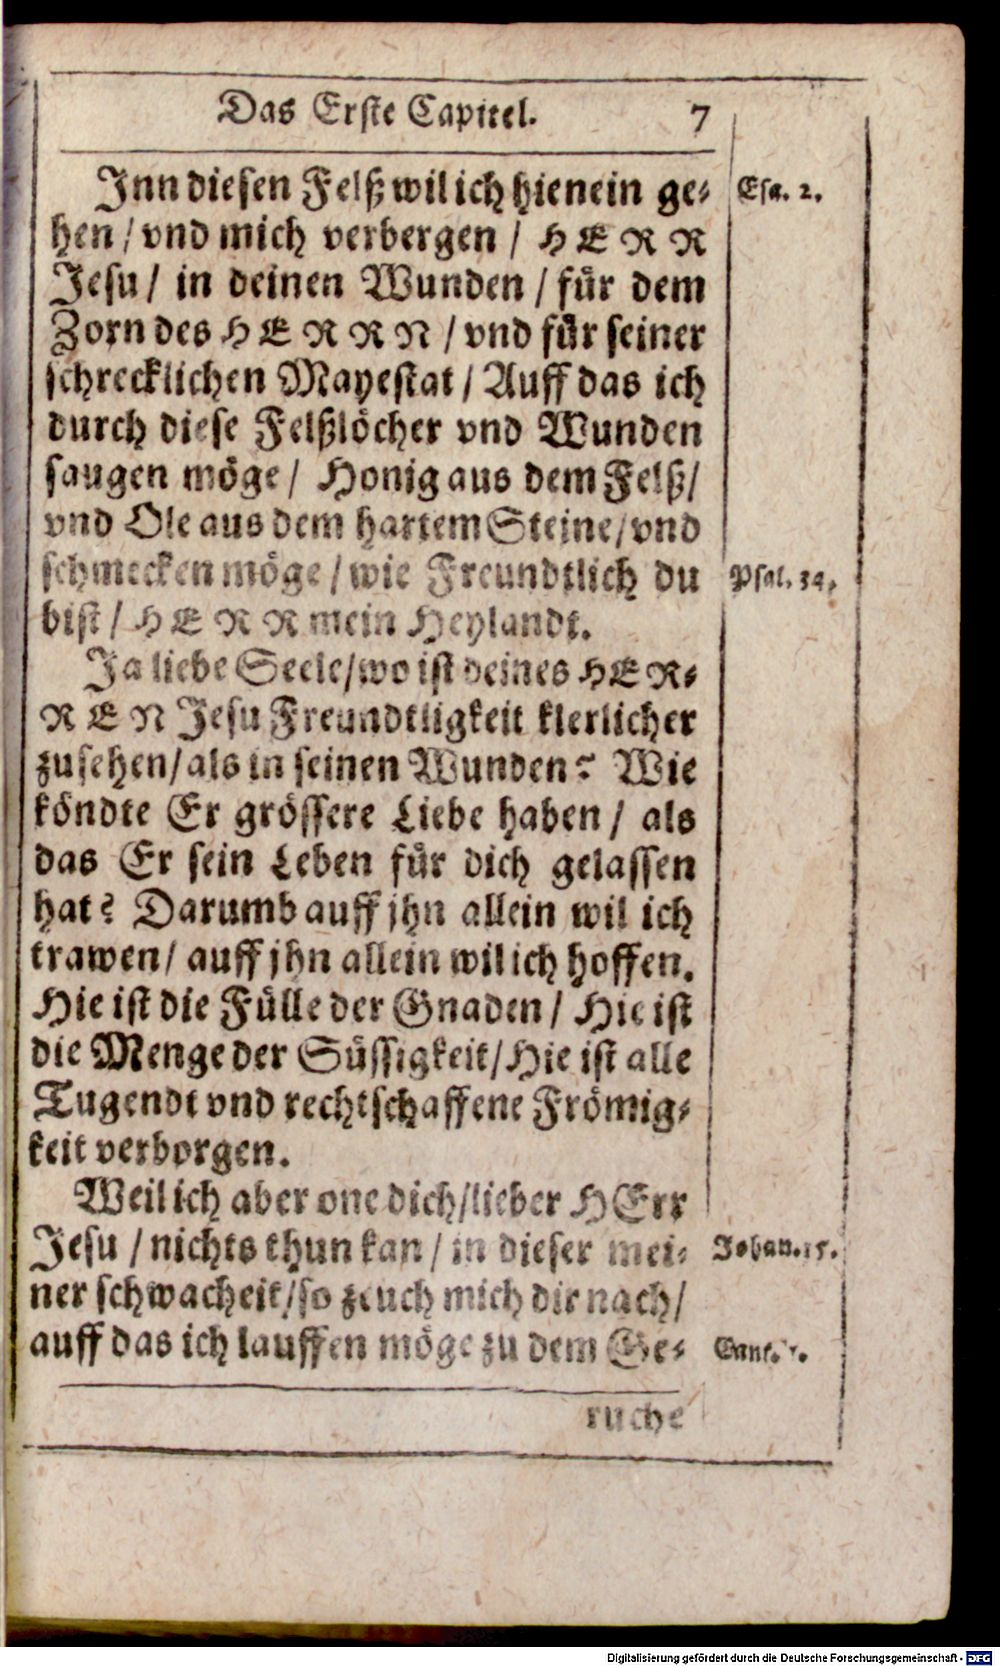 Das Erste Capitel. 7
Inn diesen Felß wil ich hienein ge⸗
Esa. 2.
hen / vnd mich verbergen / HERR
Jesu / in deinen Wunden / für dem
Zorn des HERRN / vnd für seiner
schrecklichen Mayestat / Auff das ich
durch diese Felßlöcher vnd Wunden
saugen möge / Honig aus dem Felß /
vnd Ole aus dem hartem Steine / vnd
schmecken möge / wie Freundtlich du
Psal. 34.
bist / HERR mein Heylandt.
Ja liebe Seele / wo ist deines HER⸗
REN Jesu Freundtligkeit klerlicher
zusehen / als in seinen Wunden? Wie
köndte Er grössere Liebe haben / als
das Er sein Leben für dich gelassen
hat? Darumb auff jhn allein wil ich
trawen / auff jhn allein wil ich hoffen.
Hie ist die Fülle der Gnaden / Hie ist
die Menge der Süssigkeit / Hie ist alle
Tugendt vnd rechtschaffene Frömig⸗
keit verborgen.
Weil ich aber one dich / lieber HErr
Jesu / nichts thun kan / in dieser mei⸗
Johan. 15.
ner schwacheit / so zeuch mich dir nach /
auff das ich lauffen möge zu dem Ge⸗
Cant.
ruche
Digitalisierung gefördert durch die Deutsche Forschungsgemeinschaft - DFG